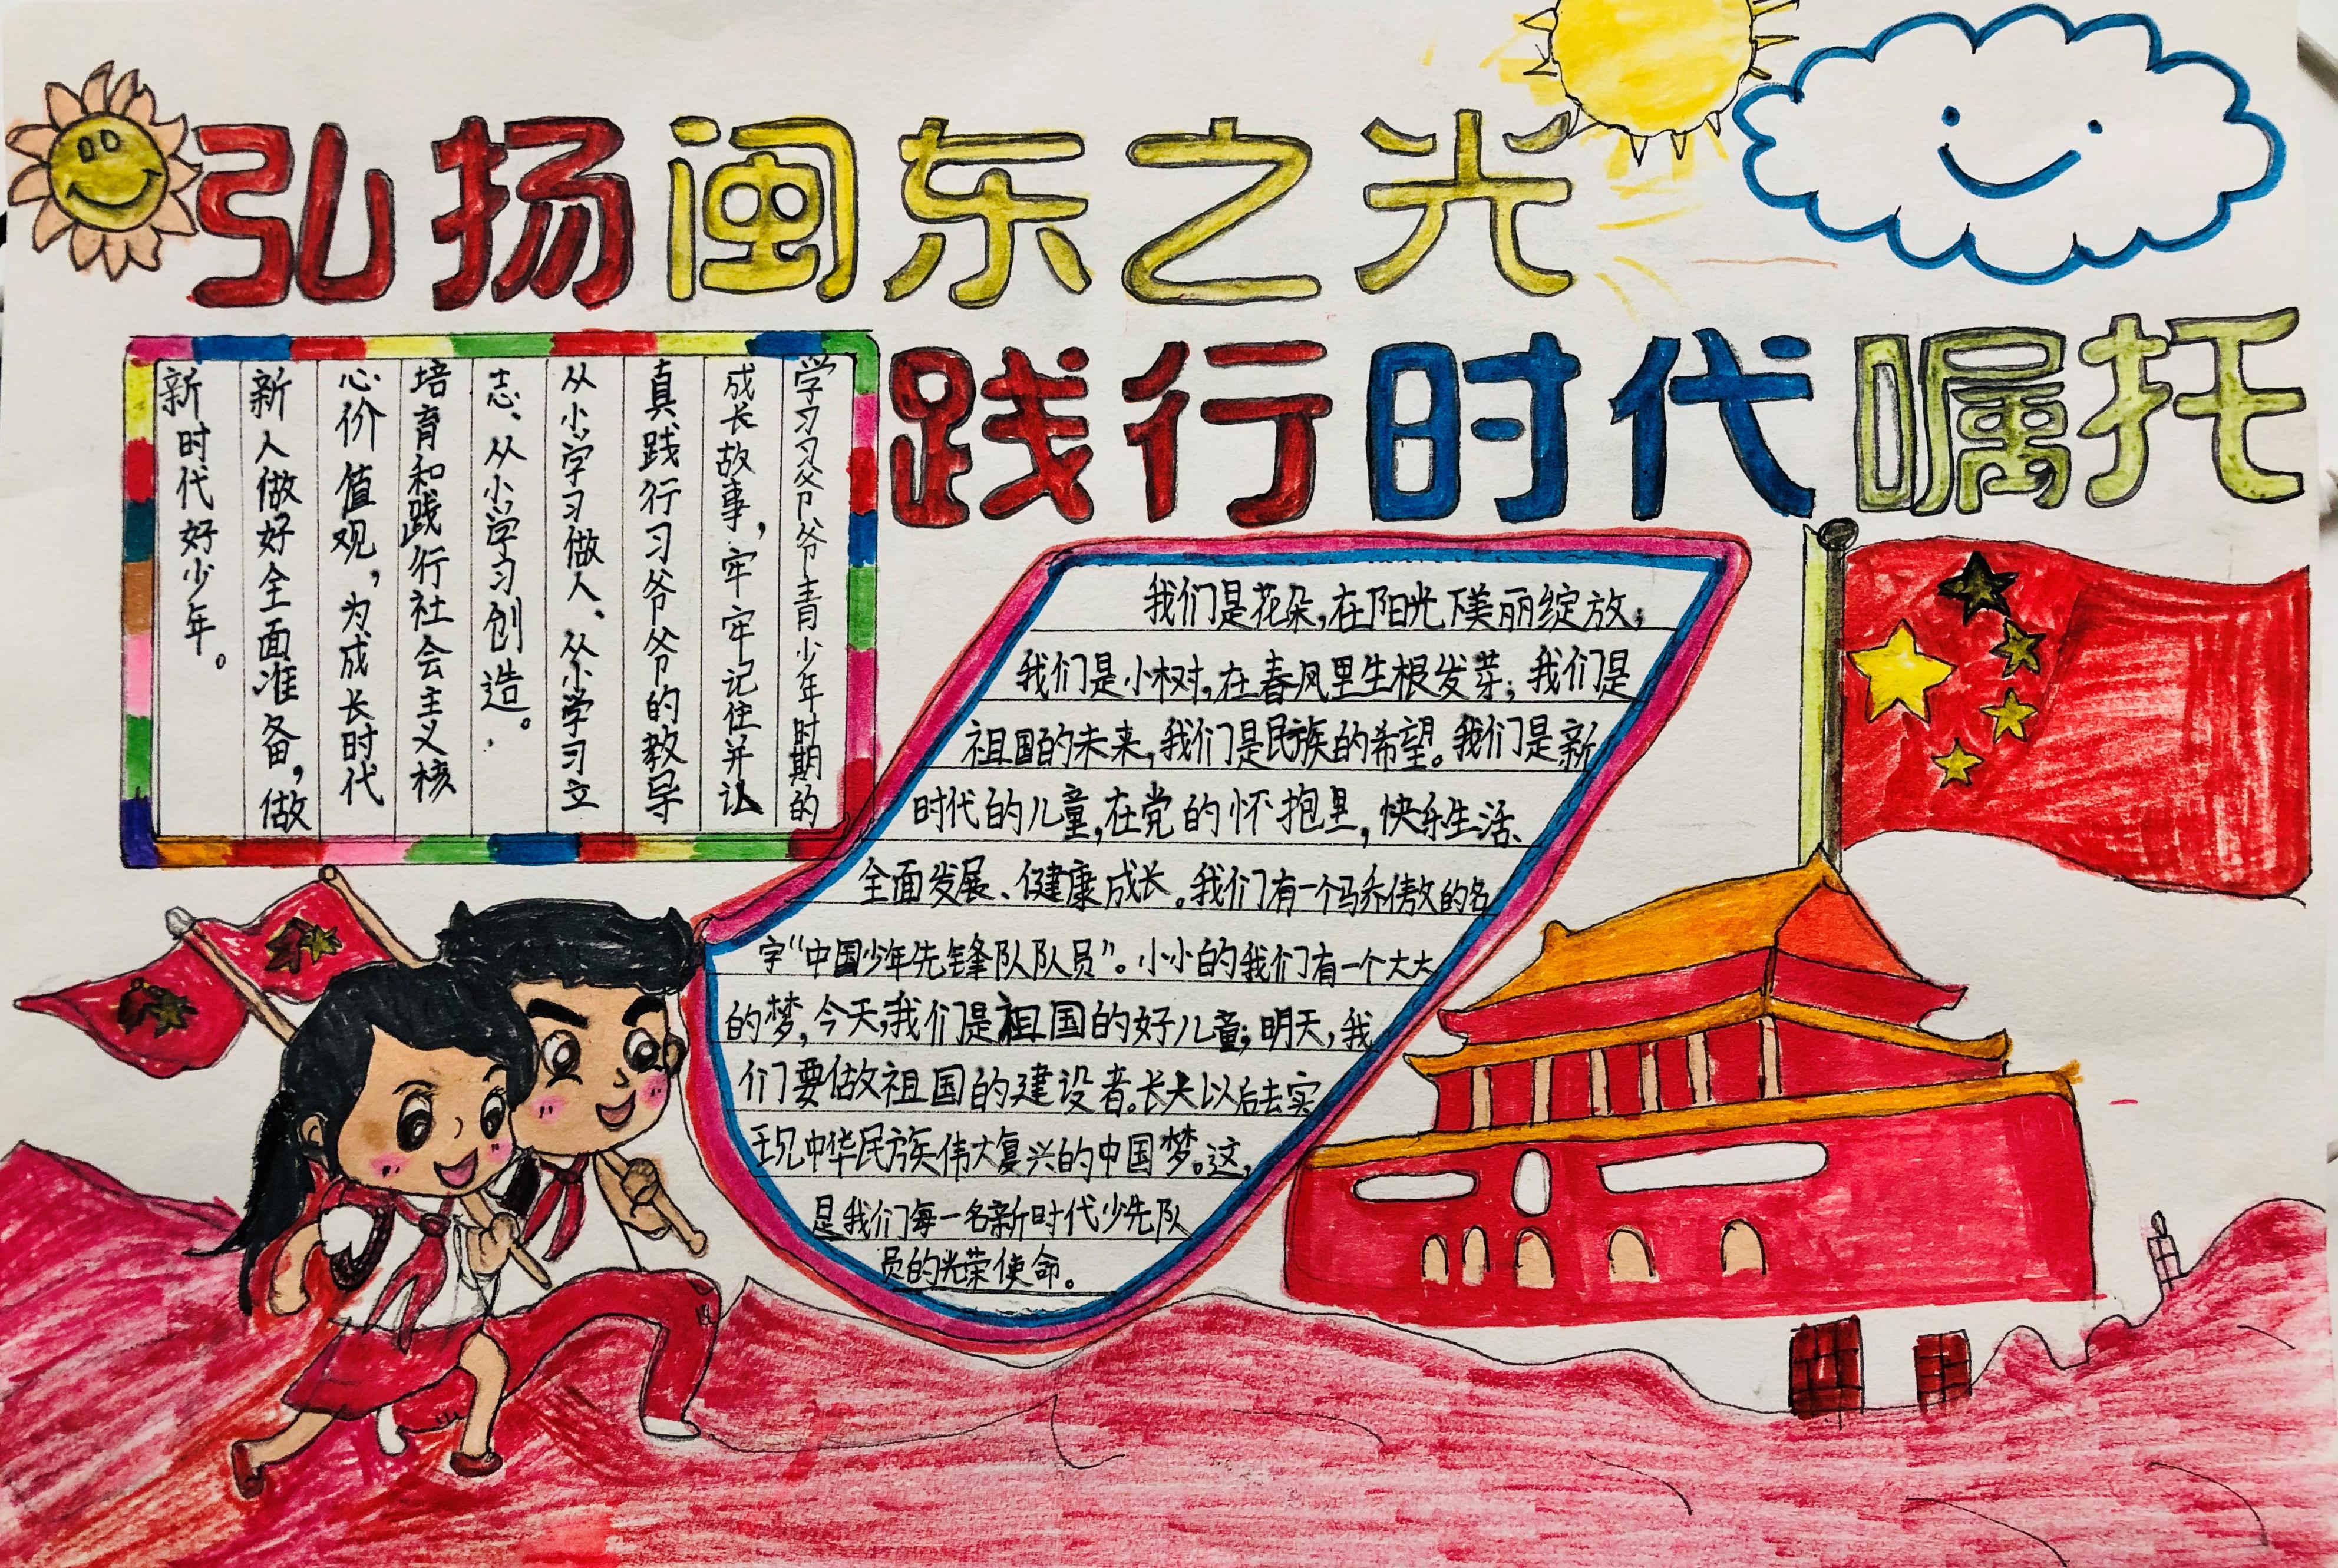 弘扬闽东之光
践行时代嘱托
学习习爷爷青少年时期的
成长故事，牢牢记住并认
真践行习爷爷的教导
从小学习做人、从小学习立
志、从小学习创造。
培育和践行社会主义核
心价值观，为成长时代
新人做好全面准备，做
新时代好少年。
我们是花朵，在阳光下美丽绽放；
我们是小树，在春风里生根发芽；我们是
祖国的未来，我们是民族的希望。我们是新
时代的儿童，在党的怀抱里，快乐生活、
全面发展、健康成长。我们有一个骄傲的名
字“中国少年先锋队队员”。小小的我们有一个大大
的梦，今天，我们是祖国的好儿童；明天，我
们要做祖国的建设者。长大以后去实
现中华民族伟大复兴的中国梦。这，
是我们每一名新时代少先队
员的光荣使命。